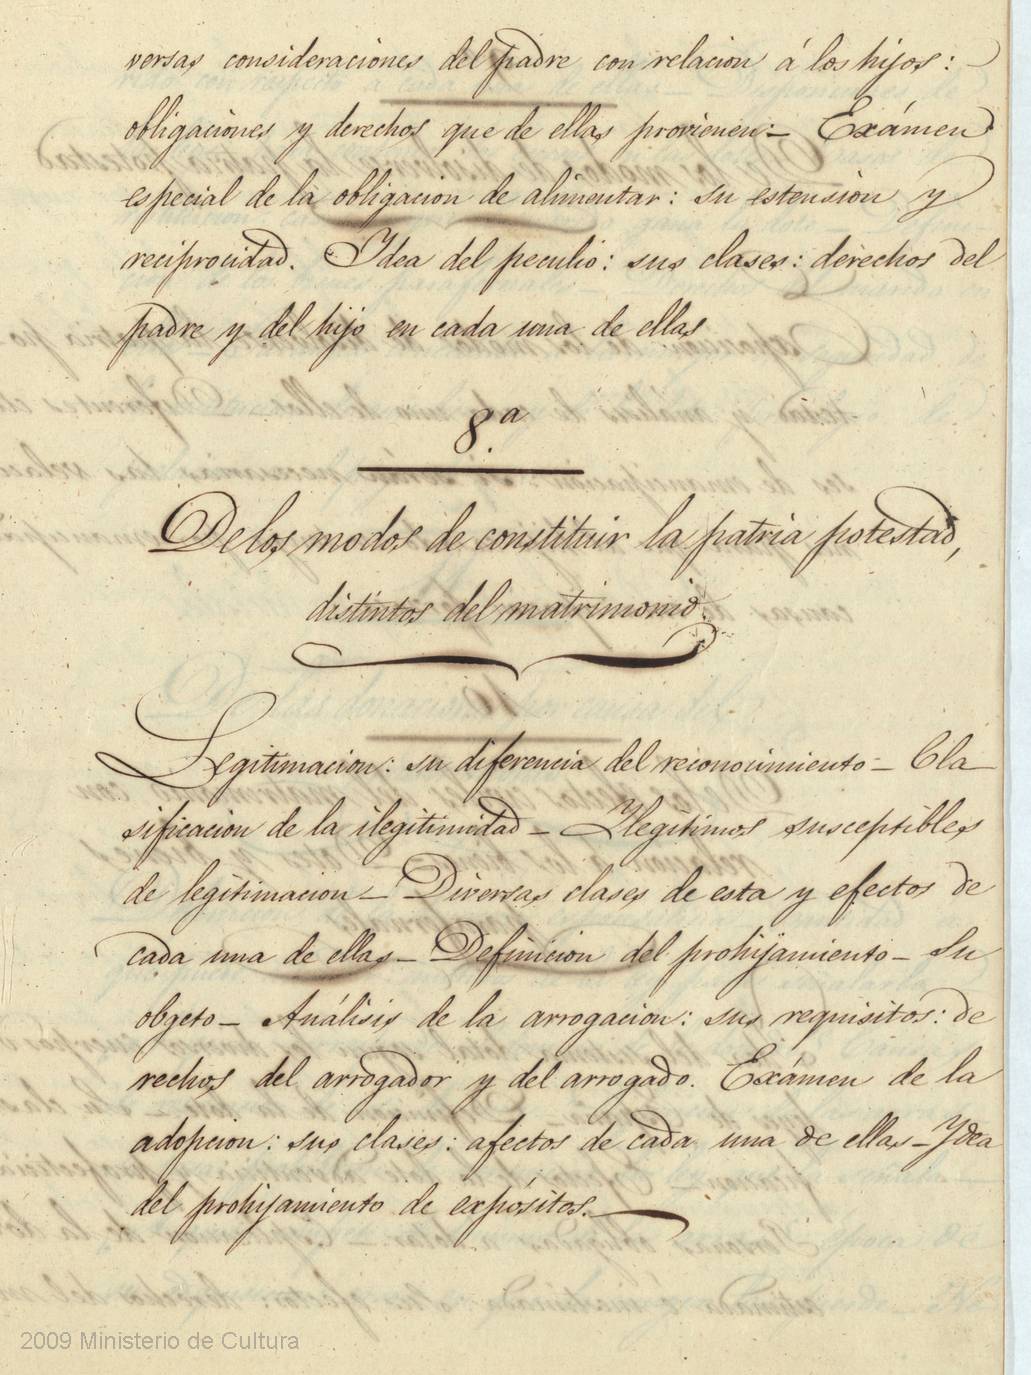 versas consideraciones del padre con relacion á los hijos:
obligaciones y derechos que de ellas provienen:_ Exámen
especial de la obligacion de alimentar: su estension y
reciprocidad. Idea del peculio: sus clases: derechos del
padre y del hijo en cada una de ellas
8.ª
De los modos de constituir la patria potestad,
distintos del matrimonio.
Legitimacion: su diferencia del reconocimiento_ Cla
sificacion de la ilegitimidad_ Ylegitimos susceptibles
de legitimacion_ Diversas clases de esta y efectos de
cada una de ellas_ Definicion del prohijamiento_ Su
obgeto_ Análisis de la arrogacion: sus requisitos: de
rechos del arrogador y del arrogado. Exámen de la
adopcion: sus clases: afectos de cada una de ellas_ Ydea
del prohijamiento de expósitos._
2009 Ministerio de Cultura